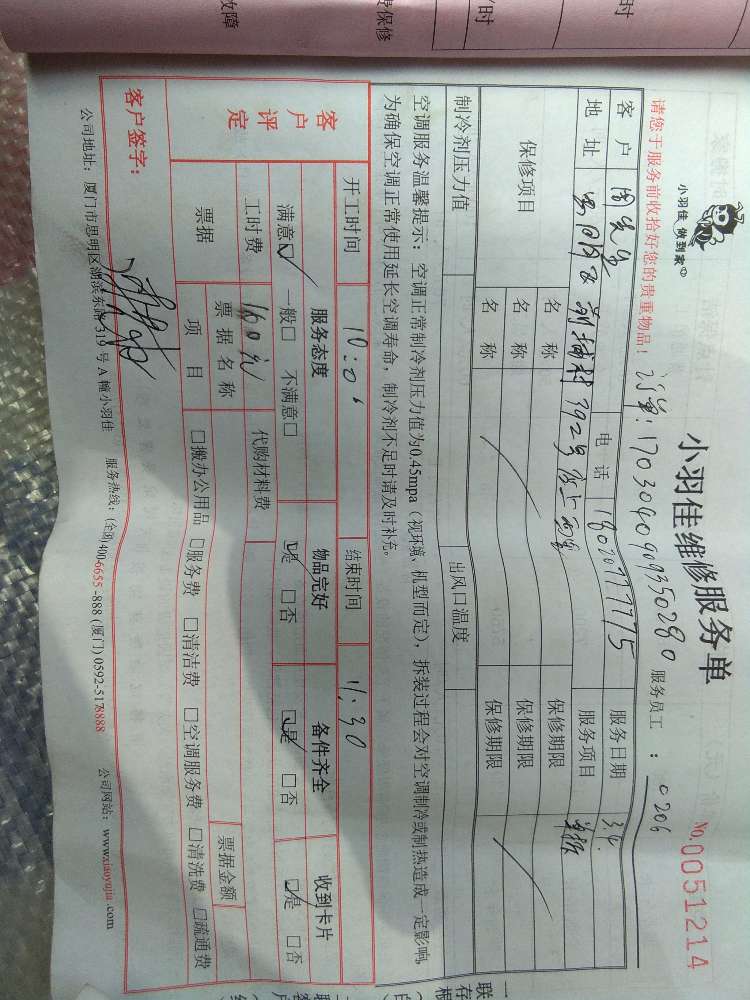 故障
保修
时
时
小羽佳 做到家
小羽佳维修服务单
No.0051214
请您于服务前收拾好您的贵重物品!
订单: 170309099350280
服务员工 : 0206
客户
周先生
电话
18020777775
服务日期
3.4
地址
392号
服务项目
保修项目
名称
保修期限
名称
保修期限
名称
保修期限
制冷剂压力值
出风口温度
空调服务温馨提示: 空调正常制冷剂压力值为0.45mpa (视环境、机型而定), 拆装过程会对空调制冷或制热造成一定影响,
为确保空调正常使用延长空调寿命, 制冷剂不足时请及时补充。
客户评定
开工时间
10:0
结束时间
11:30
服务态度
物品完好
备件齐全
收到卡片
满意☑ 一般□ 不满意□
☑是 □否
☑是 □否
☑是 □否
工时费
160元
代购材料费
票据
票据名称
票据金额
项目
□搬办公用品 □服务费 □清洁费 □空调服务费 □清洗费 □疏通费
客户签字:
公司地址: 厦门市思明区湖滨东路319号A幢小羽佳 服务热线: (全国)400-6655-888 (厦门) 0592-5178888 公司网站: www.xiaoyujia.com